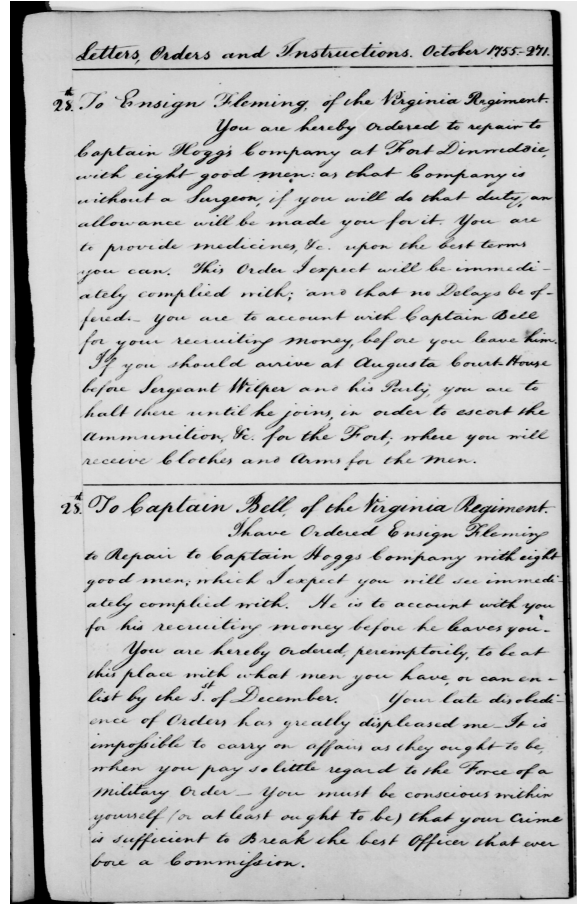 Letters, Orders and Instructions. October 1755.-271.
28.th To Ensign Fleming, of the Virginia Regiment.
You are hereby ordered to repair to
Captain Hogg's Company at Fort Dinwiddie,
with eight good men: as that Company is
without a Surgeon, if you will do that duty, an
allowance will be made you for it. You are
to provide medicines, &c. upon the best terms
you can. This Order I expect will be immedi-
ately complied with; and that no Delays be of-
fered. - you are to account with Captain Bell
for your recruiting money, before you leave him.
If you should arrive at Augusta Court-House
before Sergeant Wilper and his Party, you are to
halt there until he joins, in order to escort the
Ammunition, &c. for the Fort; where you will
receive Clothes and Arms for the men.
28.th To Captain Bell, of the Virginia Regiment.
I have Ordered Ensign Fleming
to Repair to Captain Hoggs Company with eight
good men; which I expect you will see immedi-
ately complied with. He is to account with you
for his recruiting money before he leaves you -
You are hereby Ordered, peremptorily, to be at
this place with what men you have, or can en-
list by the 1.st of December. Your late disobedi-
ence of Orders has greatly displeased me - It is
impossible to carry on affairs as they ought to be,
when you pay so little regard to the Force of a
Military Order - You must be conscious within
yourself (or at least ought to be) that your Crime
is sufficient to Break the best Officer that ever
bore a Commission.